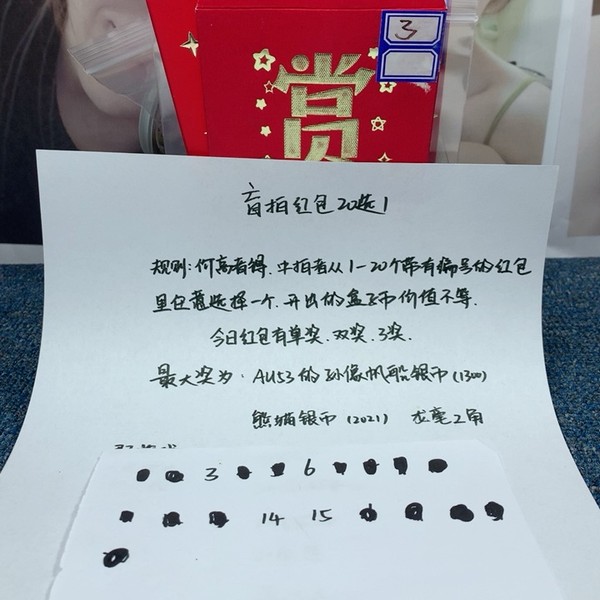 3
赏
盲拍红包20选1
规则:价高者得.中拍者从1-20个带有编号的红包
里任意选择一个.开出的盒子币价值不等.
今日红包有单奖.双奖.3奖.
最大奖为:AU53的孙像帆船银币(1300)
熊猫银币(2021) 龙毫2角
3 6
14 15